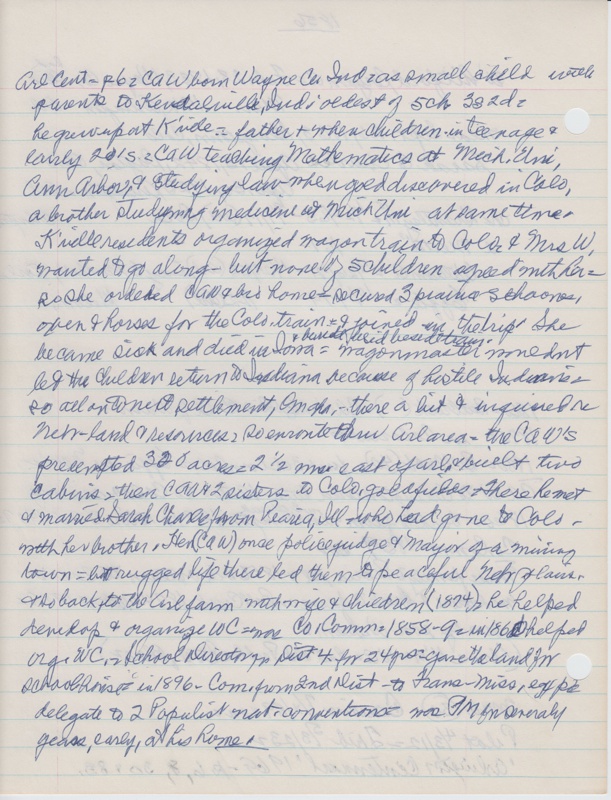 Arl Cent = p 6 = CAW born Wayne Co Ind = as small child with
parents to Kendalville, Ind; oldest of 5 ch
he grew up at K'vide = father + when children in teenage &
early 20's = CAW teaching Mathematics at Mich. Uni,
Ann Arbor, & studying law when gold discovered in Colo,
a brother studying medicine at Mich Uni at same time.
K'ville residents organized wagon train to Colo, & Mrs W,
wanted to go along - but none of 5 children agreed with her =
so she ordered CAW & bro home = secured 3 prairie schooners,
oxen & horses for the Colo. train = & joined in the trip. She
& buried beside
became sick and died in Iowa = wagonmaster would n't
let the children return to Indiana because of hostile Indians =
so all on to next settlement, Omaha, - there a bit & inquired re
Nebr - land & resources = so enroute thru Arl area = the CAW's
preempted 320 acres = 2 1/2 mi east of Arl & built two
cabins = then CAW & 2 sisters to Colo. goldfields = There he met
& married Sarah from Peoria, Ill - who had gone to Colo -
with her brother. He (CAW) once police judge & Mayor of a mining
town = but rugged life there led them to peaceful Nebr plains.
& so back to the Arl farm with wife & children (1874) he helped
develop & organize WC = was Co. Comm = 1858-9 = in 1860 helped
org. WC, = School Director, Dist 4 for 24 yrs = gave the land for
schoolhouse = in 1896 - Com. from 2nd Dist - to Trans-Miss, exp =
delegate to 2 Populist nat. conventions = was PM for several
years, early, at his home.